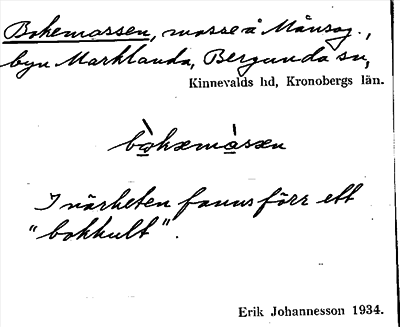 Bokemossen, mosse å Månsag.,
byn Marklanda, Bergunda sn,
Kinnevalds hd, Kronobergs län.
I närheten fanns förr ett
"bokhult".
Erik Johannesson 1934.